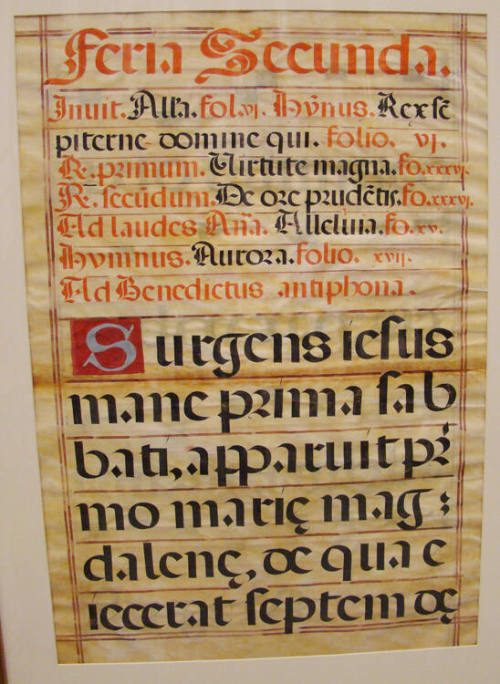 Feria Secunda.
Inuit. All'a. fol. vj. Hẏnus. Rex sē
piterne domine qui. folio. vj.
R. primum. Uirtute magna. fo. xxxvj.
R. secūdum. De ore prudētis. fo. xxxvj.
Ad laudes Aña. Alleluia. fo. xv.
Hymnus. Aurora. folio. xvij.
Ad Benedictus antiphona.
Surgens iesus
mane prima sab
bati, apparuit pri
mo marię mag:
dalenę, de qua e
iecerat septem dę